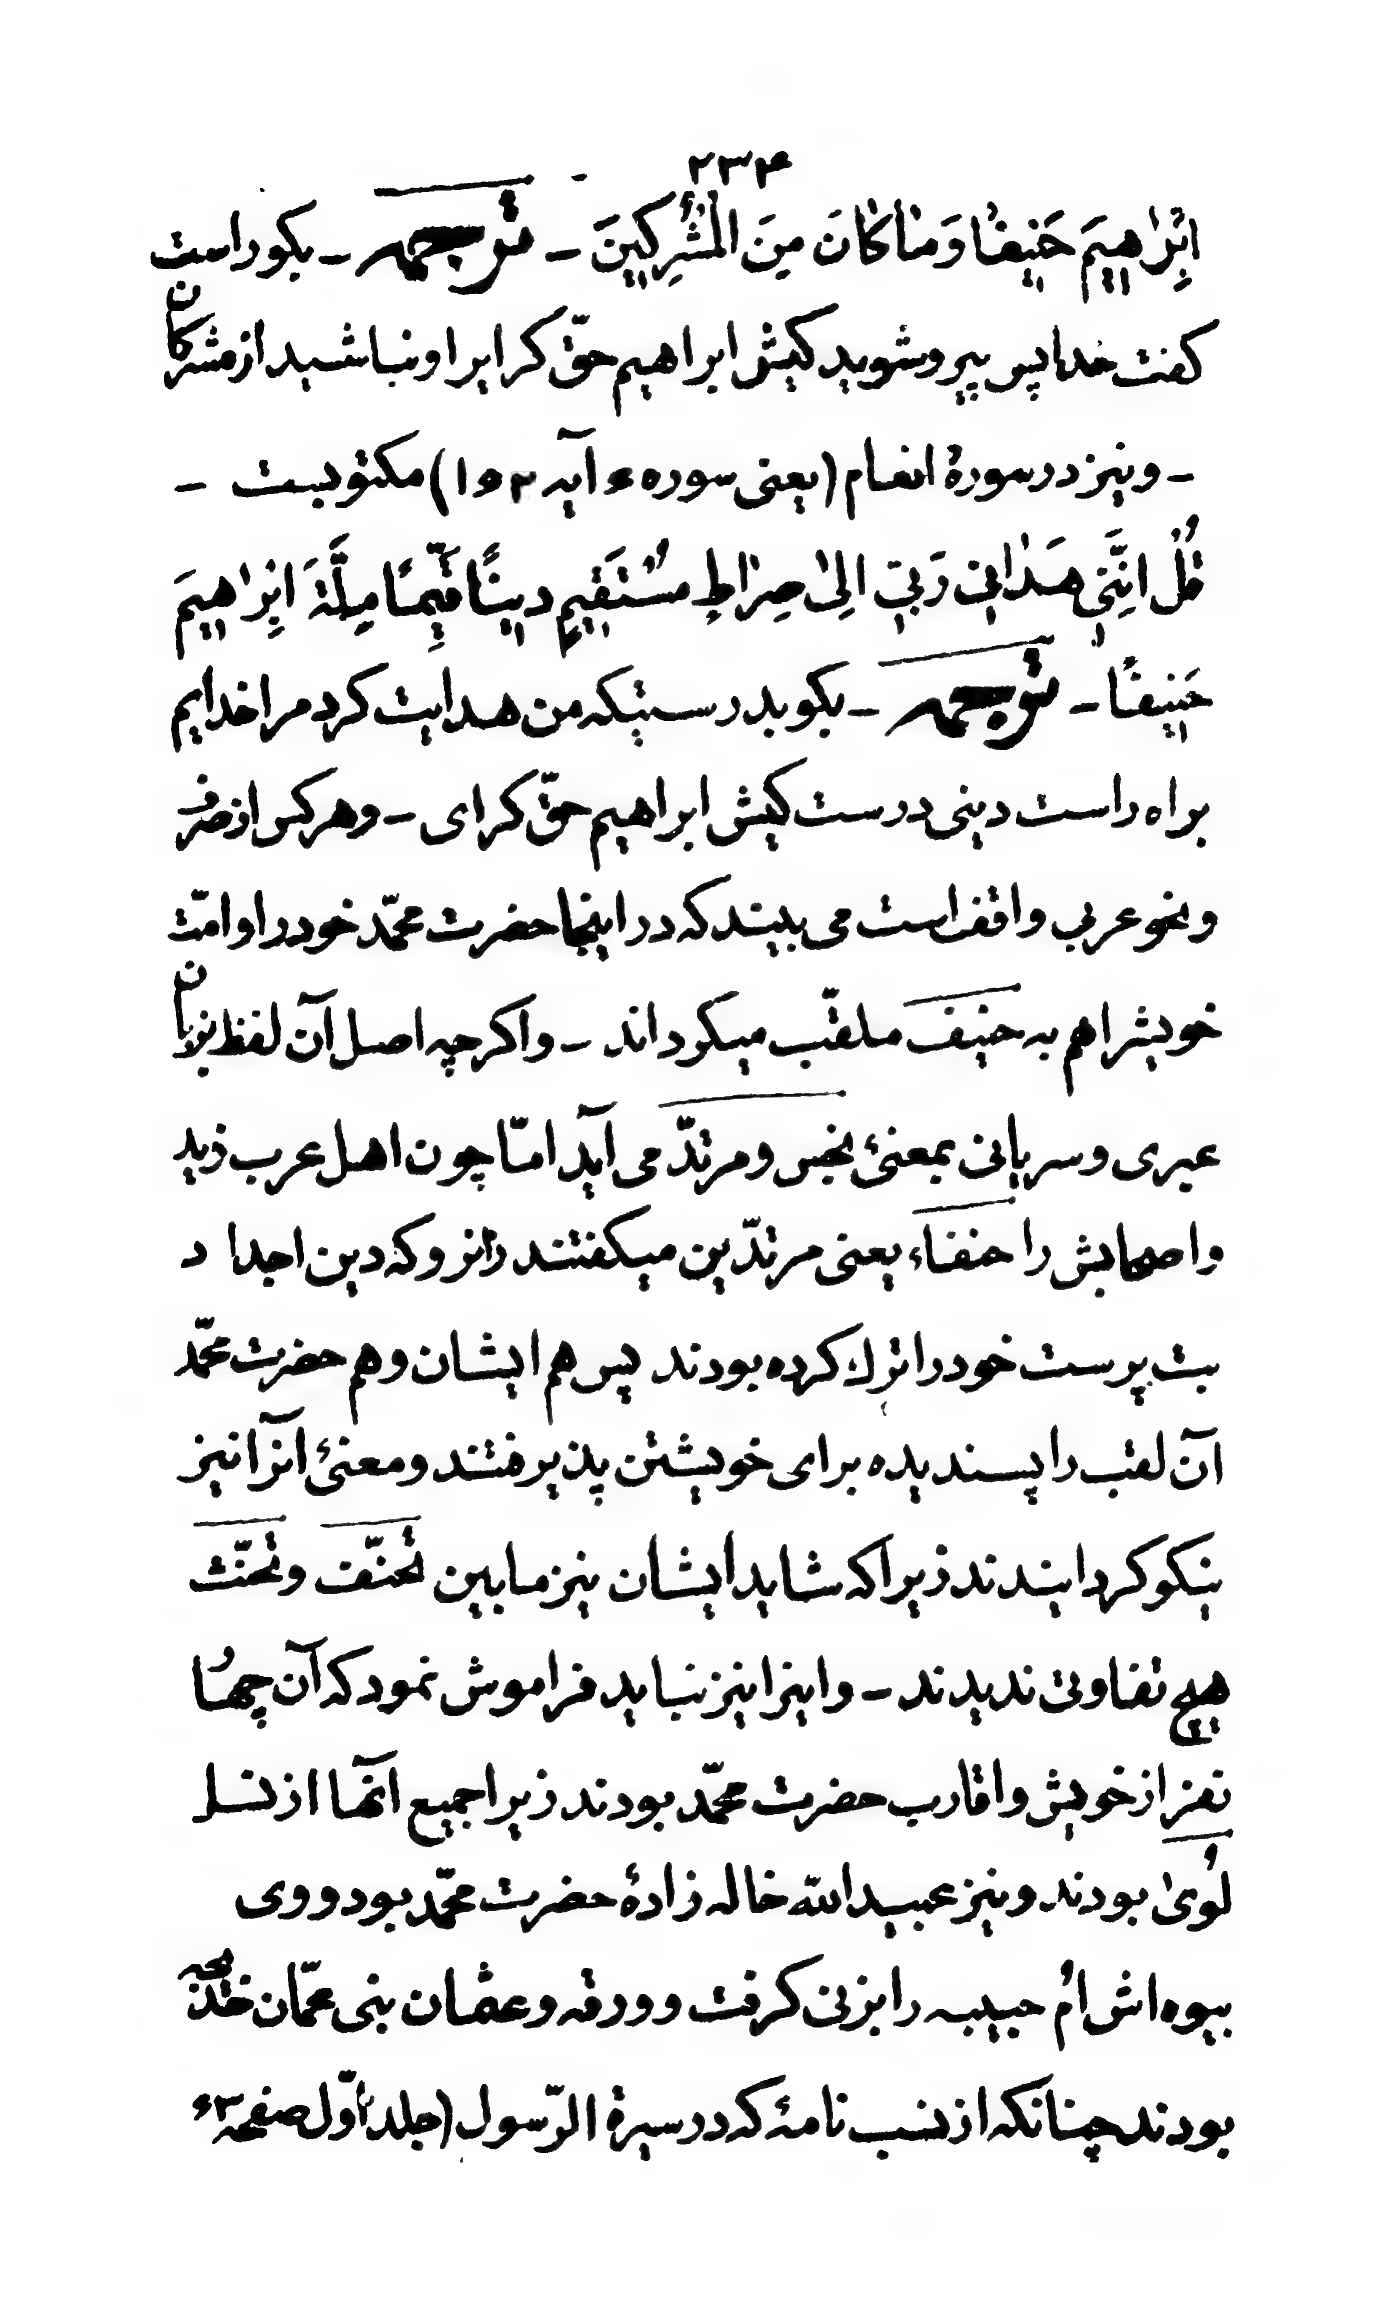 ۲۳۴
اِبْرٰاهِیمَ حَنِیفًا وَمٰا کٰانَ مِنَ الْمُشْرِکِینَ – ترجمه – بکو راست
کفت خدا پس پیرو شوید کیش ابراهیم حقّ کرایرا و نباشید از مشرکان
– و نیز در سورهٔ انعام (یعنی سوره ۶ آیه ۱۶۲) مکتوبست –
قُلْ اِنَّنِی هَدٰانِی رَبِّی اِلیٰ صِرٰاطٍ مُسْتَقِیمٍ دِینًا قَیِّمًا مِلَّةَ اِبْرٰاهِیمَ
حَنِیفًا – ترجمه – بکو بدرستیکه من هدایت کرد مرا خدایم
براه راست دینی درست کیش ابراهیم حقّ کرای – و هرکس از صرف
و نحو عربی واقف است می بیند که در اینجا حضرت محمّد خود را و امّت
خویشرا هم به حنیف ملقّب میکرداند – و اکرچه اصل آن لفظ بزبان
عبری و سریانی بمعنیٔ نجس و مرتدّ می آید امّا چون اهل عرب زید
و اصحابش را حنفاء یعنی مرتدّین میکفتند زانرو که دین اجداد
بت پرست خود را ترك کرده بودند پس هم ایشان و هم حضرت محمّد
آن لقب را پسندیده برای خویشتن پذیرفتند و معنیٔ آنرا نیز
نیکو کردانیدند زیرا که شاید ایشان نیز مابین تحنّف و تحنّث
هیچ تفاوتی ندیدند – و اینرا نیز نباید فراموش نمود که آن چهُار
نفر از خویش و اقارب حضرت محمّد بودند زیرا جمیع آنها از نسل
لُویٰ بودند و نیز عبیدالله خاله زادهٔ حضرت محمّد بود و وی
بیوه اش اُم حبیبه را بزنی کرفت و ورقه و عثمان بنی عمّان خدیجه
بودند چنانکه از نسب نامهٔ که در سیرة الرّسول (جلد اوّل صفحه ۶۳